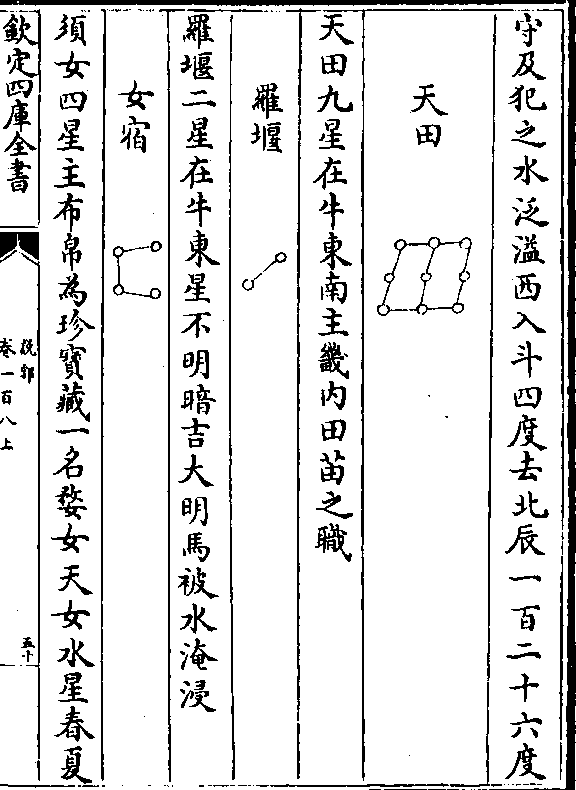 守及犯之水泛溢西入斗四度去北辰一百二十六度
天田
天田九星在牛東南主畿内田苗之職
羅堰
羅堰二星在牛東星不明暗吉大明馬被水淹浸
女宿
須女四星主布帛為珍寳藏一名婺女天女水星春夏
欽定四庫全書
說郛
卷一百八上
五十